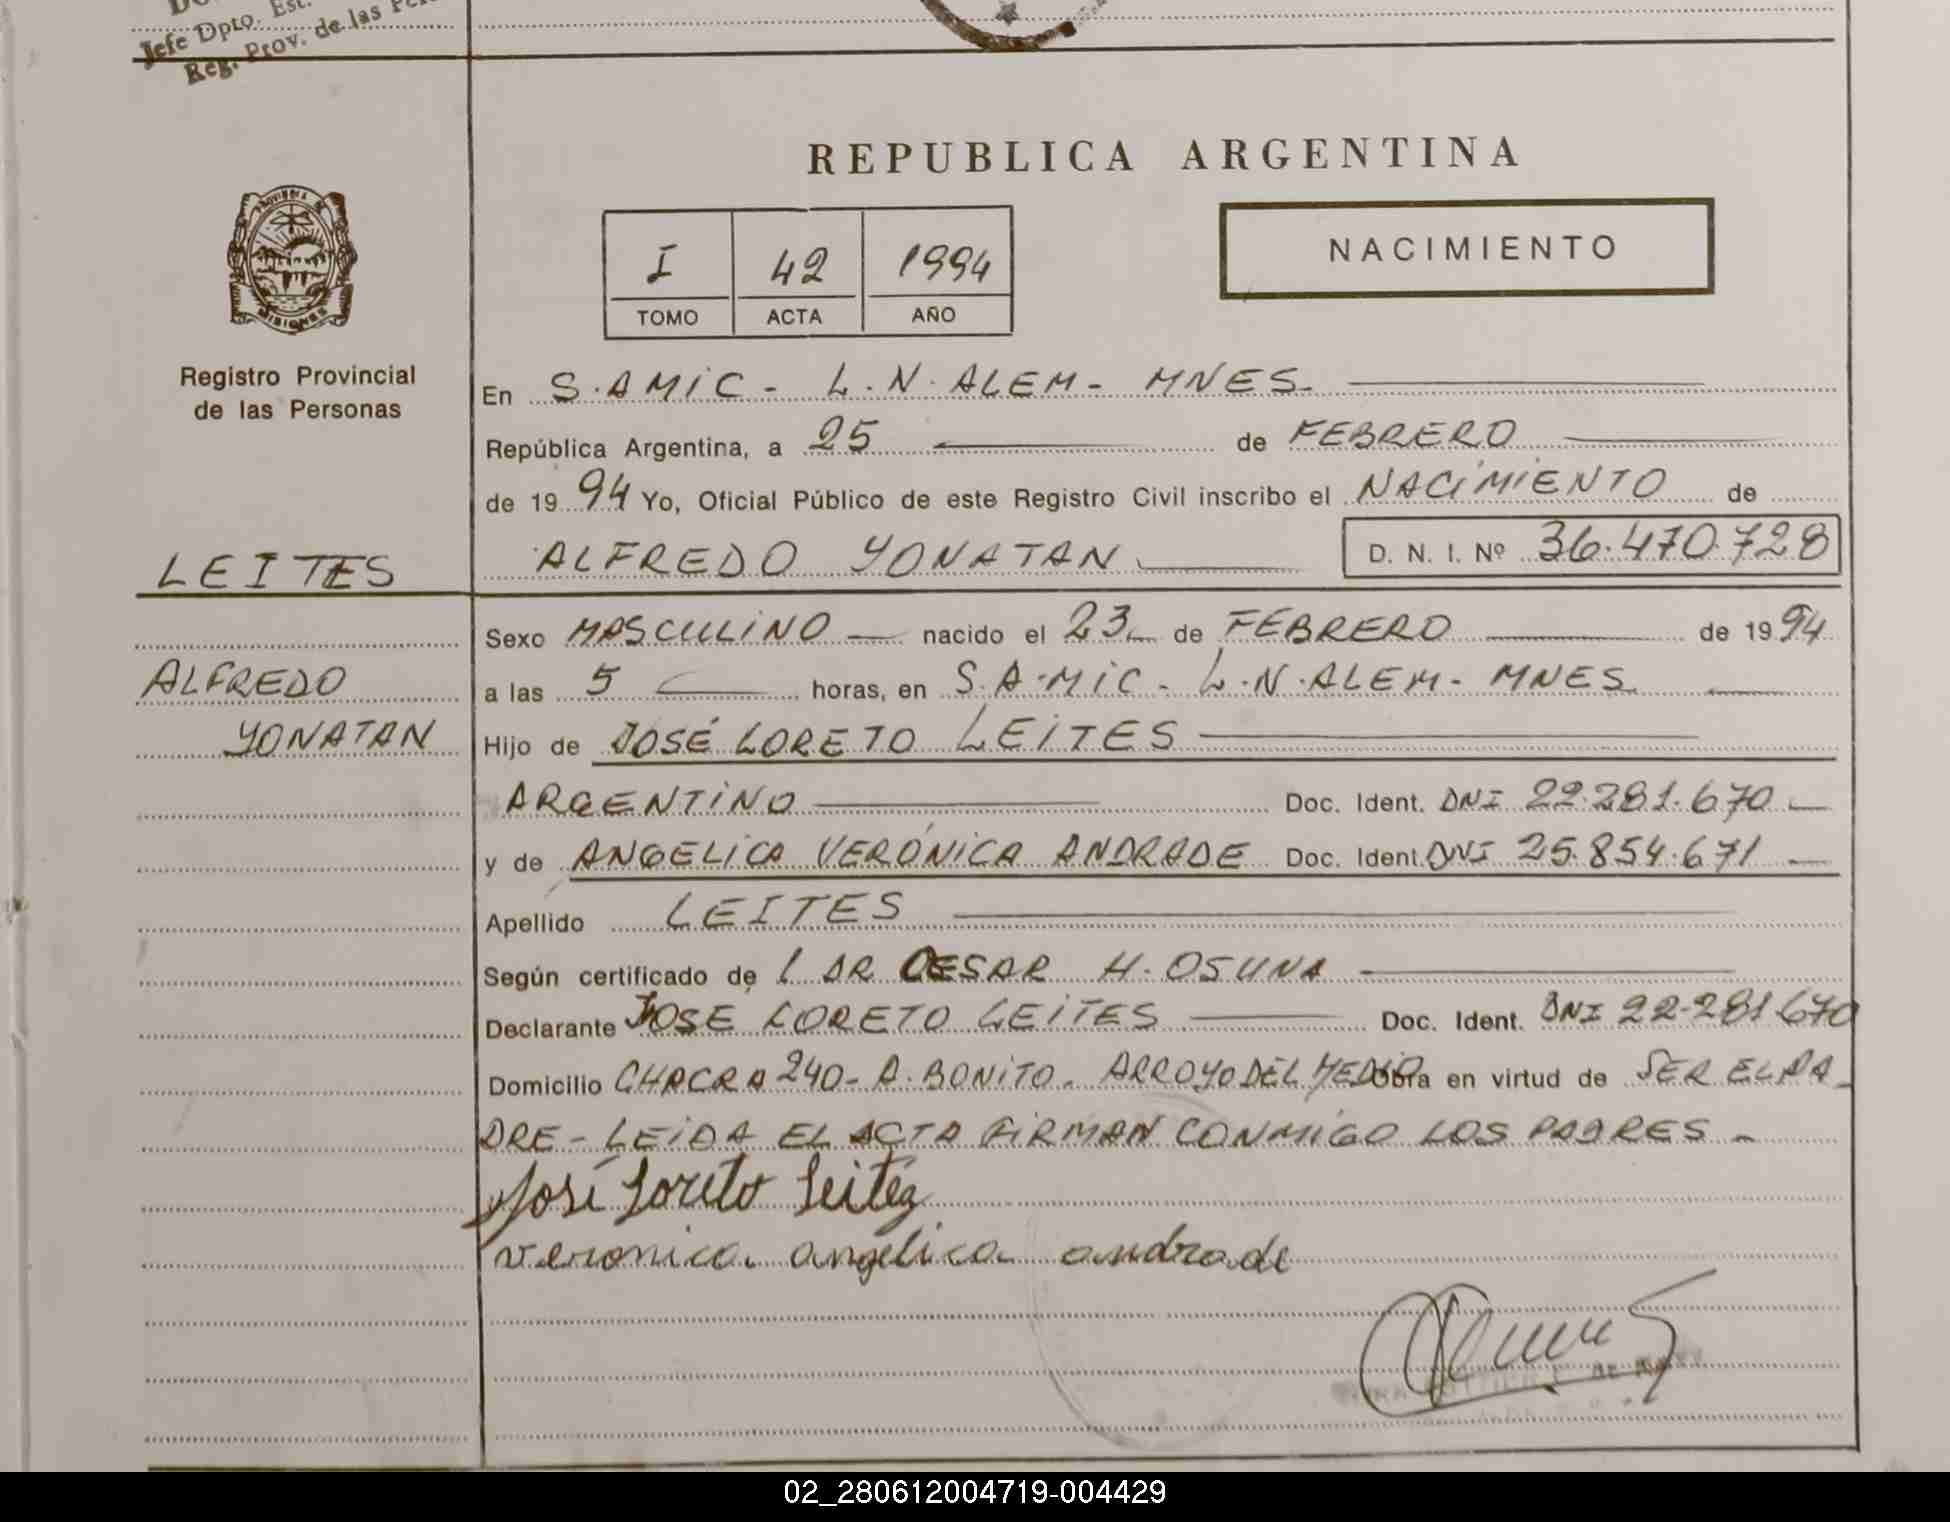 Jefe Dpto. Est.
Reg. Prov. de las
REPUBLICA ARGENTINA
I 42 1994
TOMO ACTA AÑO
NACIMIENTO
MISIONES
Registro Provincial
de las Personas
LEITES
ALFREDO
YONATAN
En S.AMIC - L.N.ALEM - MNES.
República Argentina, a 25 de FEBRERO
de 1994 Yo, Oficial Público de este Registro Civil inscribo el NACIMIENTO de
ALFREDO YONATAN D. N. I. Nº 36.470.728
Sexo MASCULINO nacido el 23 de FEBRERO de 1994
a las 5 horas, en S.A.MIC - L.N.ALEM - MNES
Hijo de JOSÉ LORETO LEITES
ARGENTINO Doc. Ident. DNI 22.281.670
y de ANGELICA VERÓNICA ANDRADE Doc. Ident. DNI 25.854.671
Apellido LEITES
Según certificado de DR CESAR H. OSUNA
Declarante JOSE LORETO LEITES Doc. Ident. DNI 22.281.670
Domicilio CHACRA 240 - A. BONITO. ARROYO DEL MEDIO Obra en virtud de SER EL PA-
DRE - LEIDA EL ACTA FIRMAN CONMIGO LOS PADRES -
José Loreto Leitez
veronica angelica andrade
02_280612004719-004429